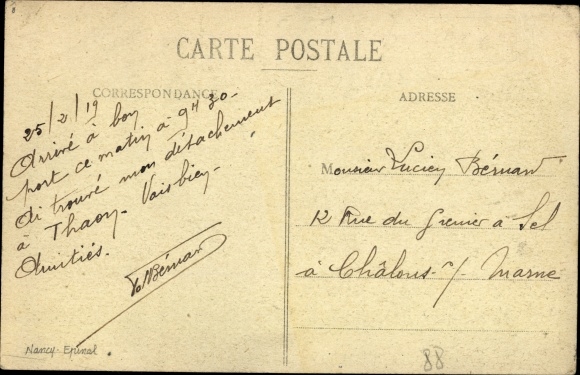 CARTE POSTALE
CORRESPONDANCE
ADRESSE
25/2/19
Arrivé à bon
port ce matin à 9H30 -
Ai trouvé mon détachement
à Thaon. Vais bien.
Amitiés.
Bénard
Monsieur Lucien Bénard
12 Rue du Grenier à Sel
à Châlons s/ Marne
Nancy-Epinal
88